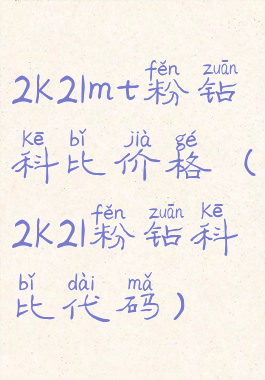 2K21mt粉钻
科比价格（
2K21粉钻科
比代码）